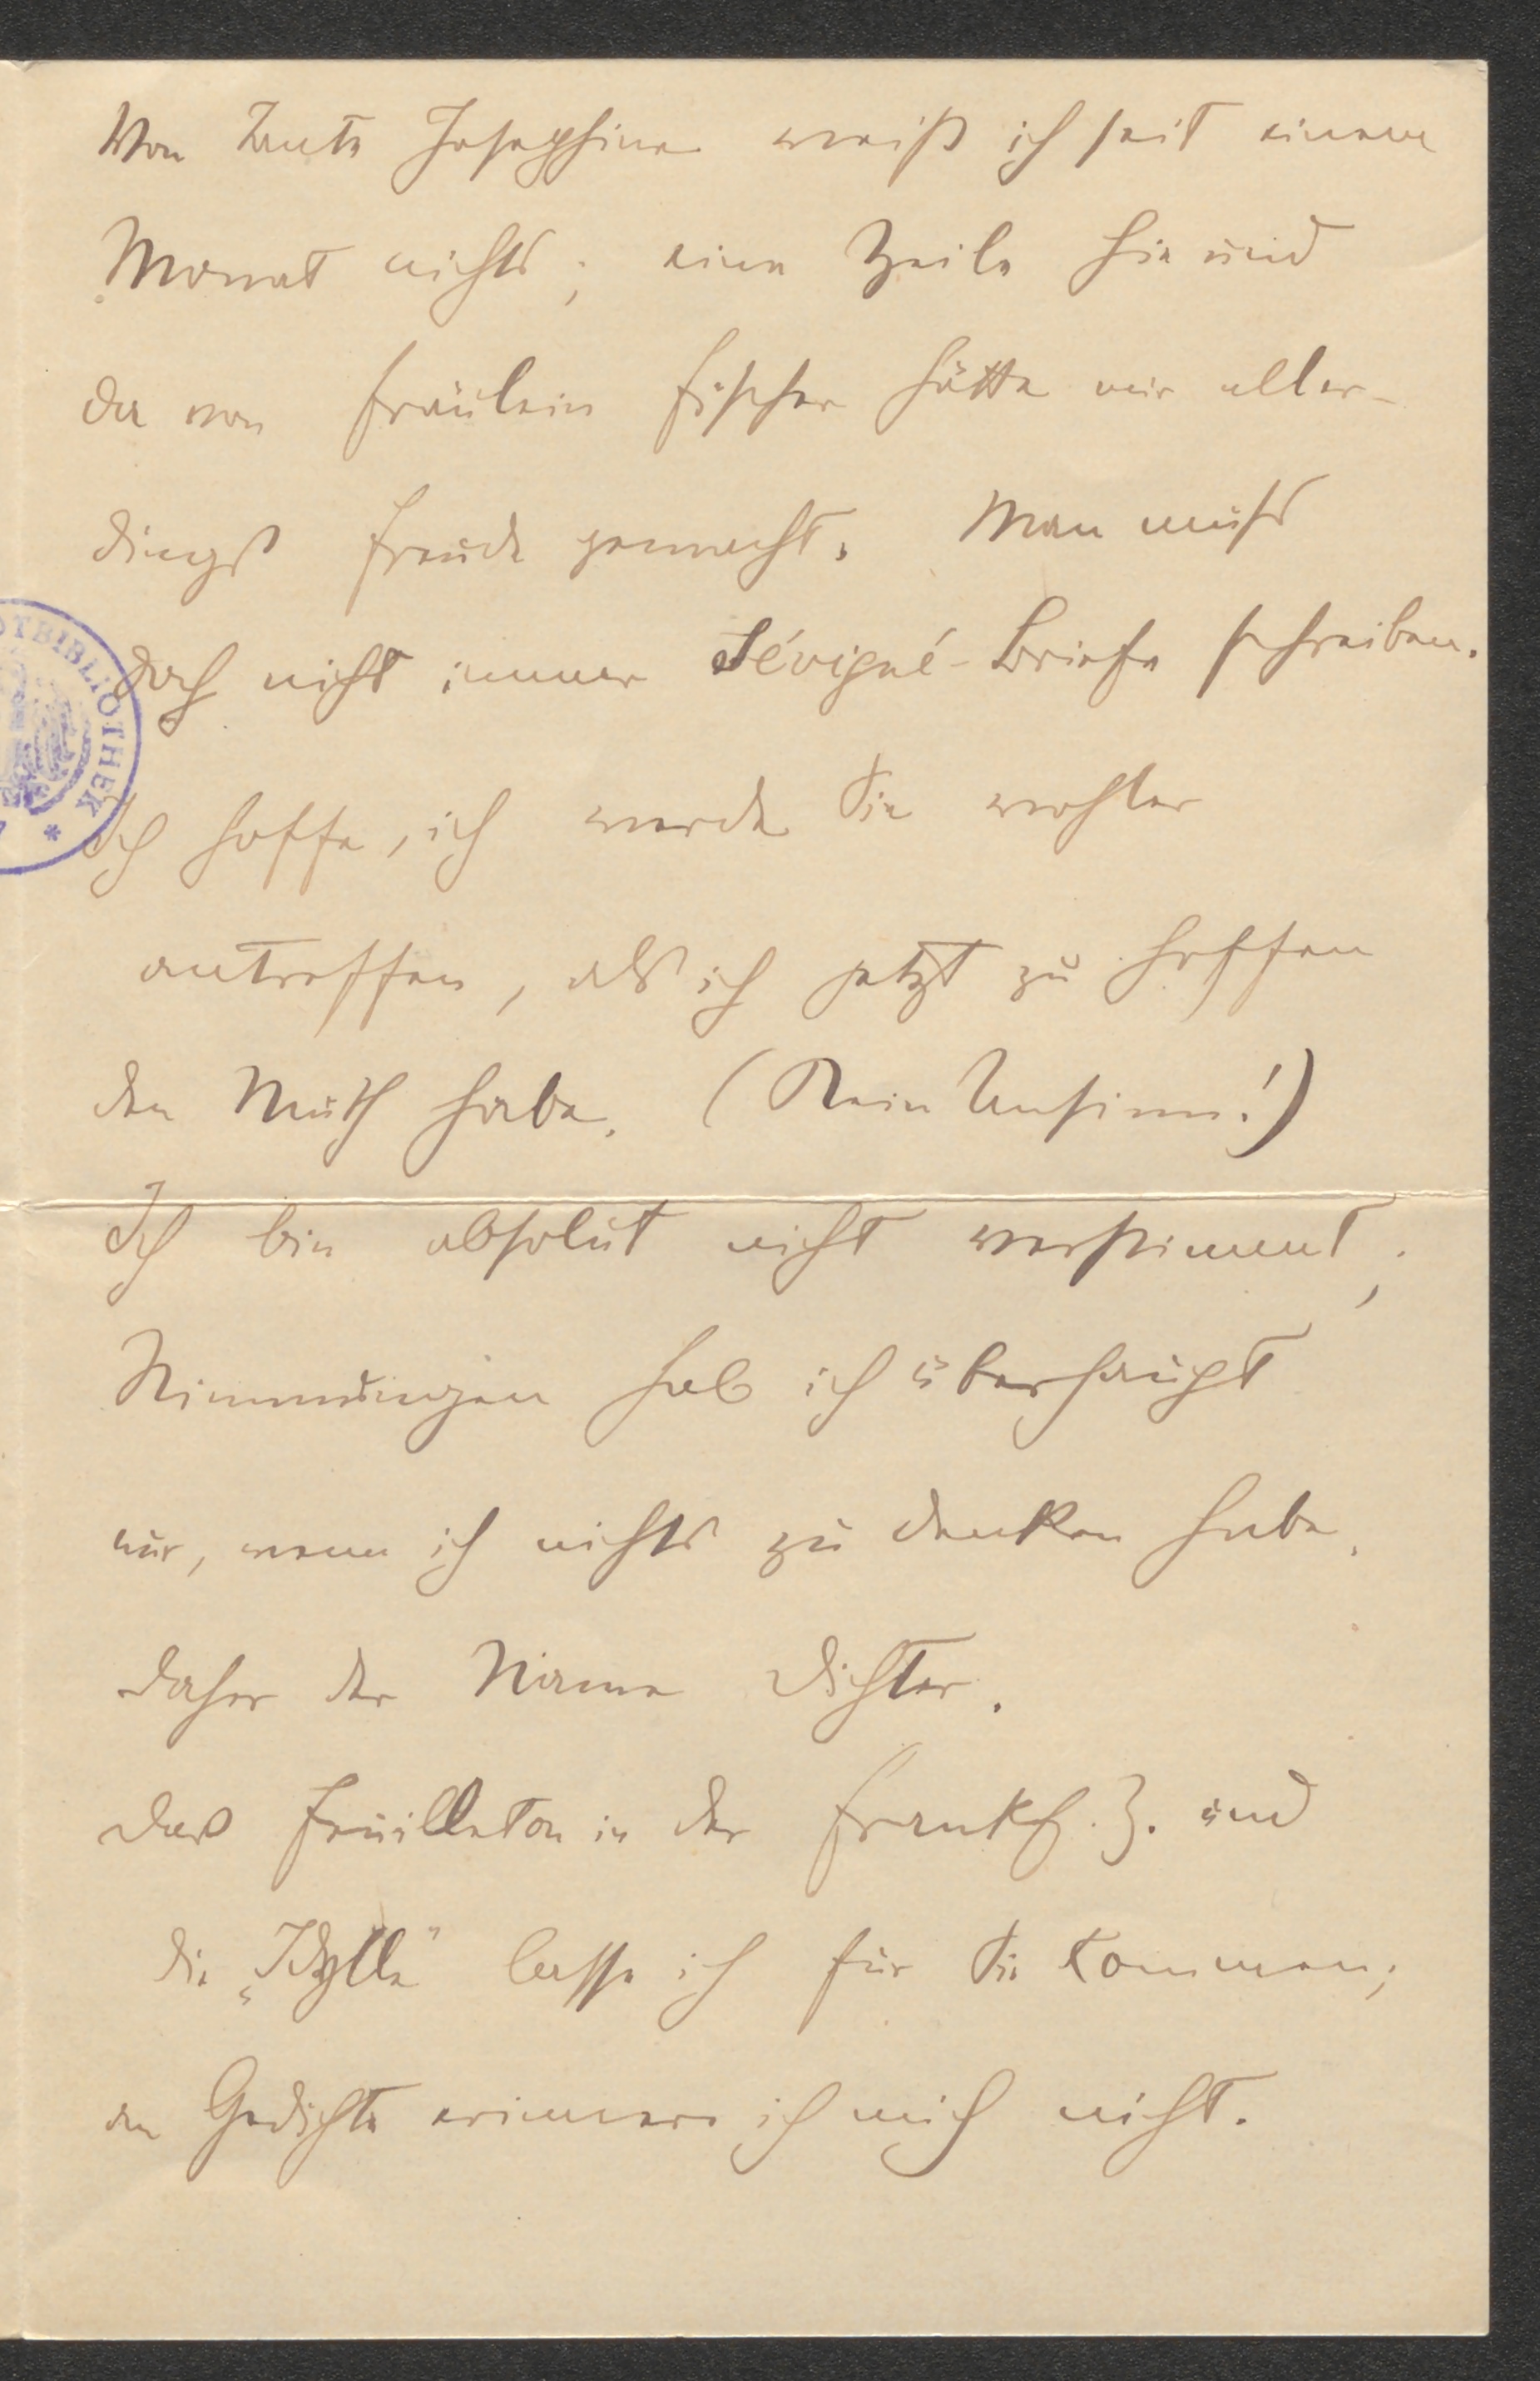 Von Tante Josephine weiß ich seit einem
Monat nichts; eine Zeile hie und
da von Fräulein Fischer hätte mir aller-
dings Freude gemacht. Man muss
doch nicht immer Sévigné-Briefe schreiben.
Ich hoffe, ich werde Sie wohler
antreffen, als ich jetzt zu hoffen
den Muth habe. (Kein Unsinn!)
Ich bin absolut nicht verstimmt;
Stimmungen hab ich überhaupt
nur, wenn ich nichts zu denken habe.
daher der Name Dichter.
Das Feuilleton in der Frankf. Z. und
die „Idylle“ lasse ich für Sie kommen;
an Gedichte erinnere ich mich nicht.
OTBIBLIOTHEK *